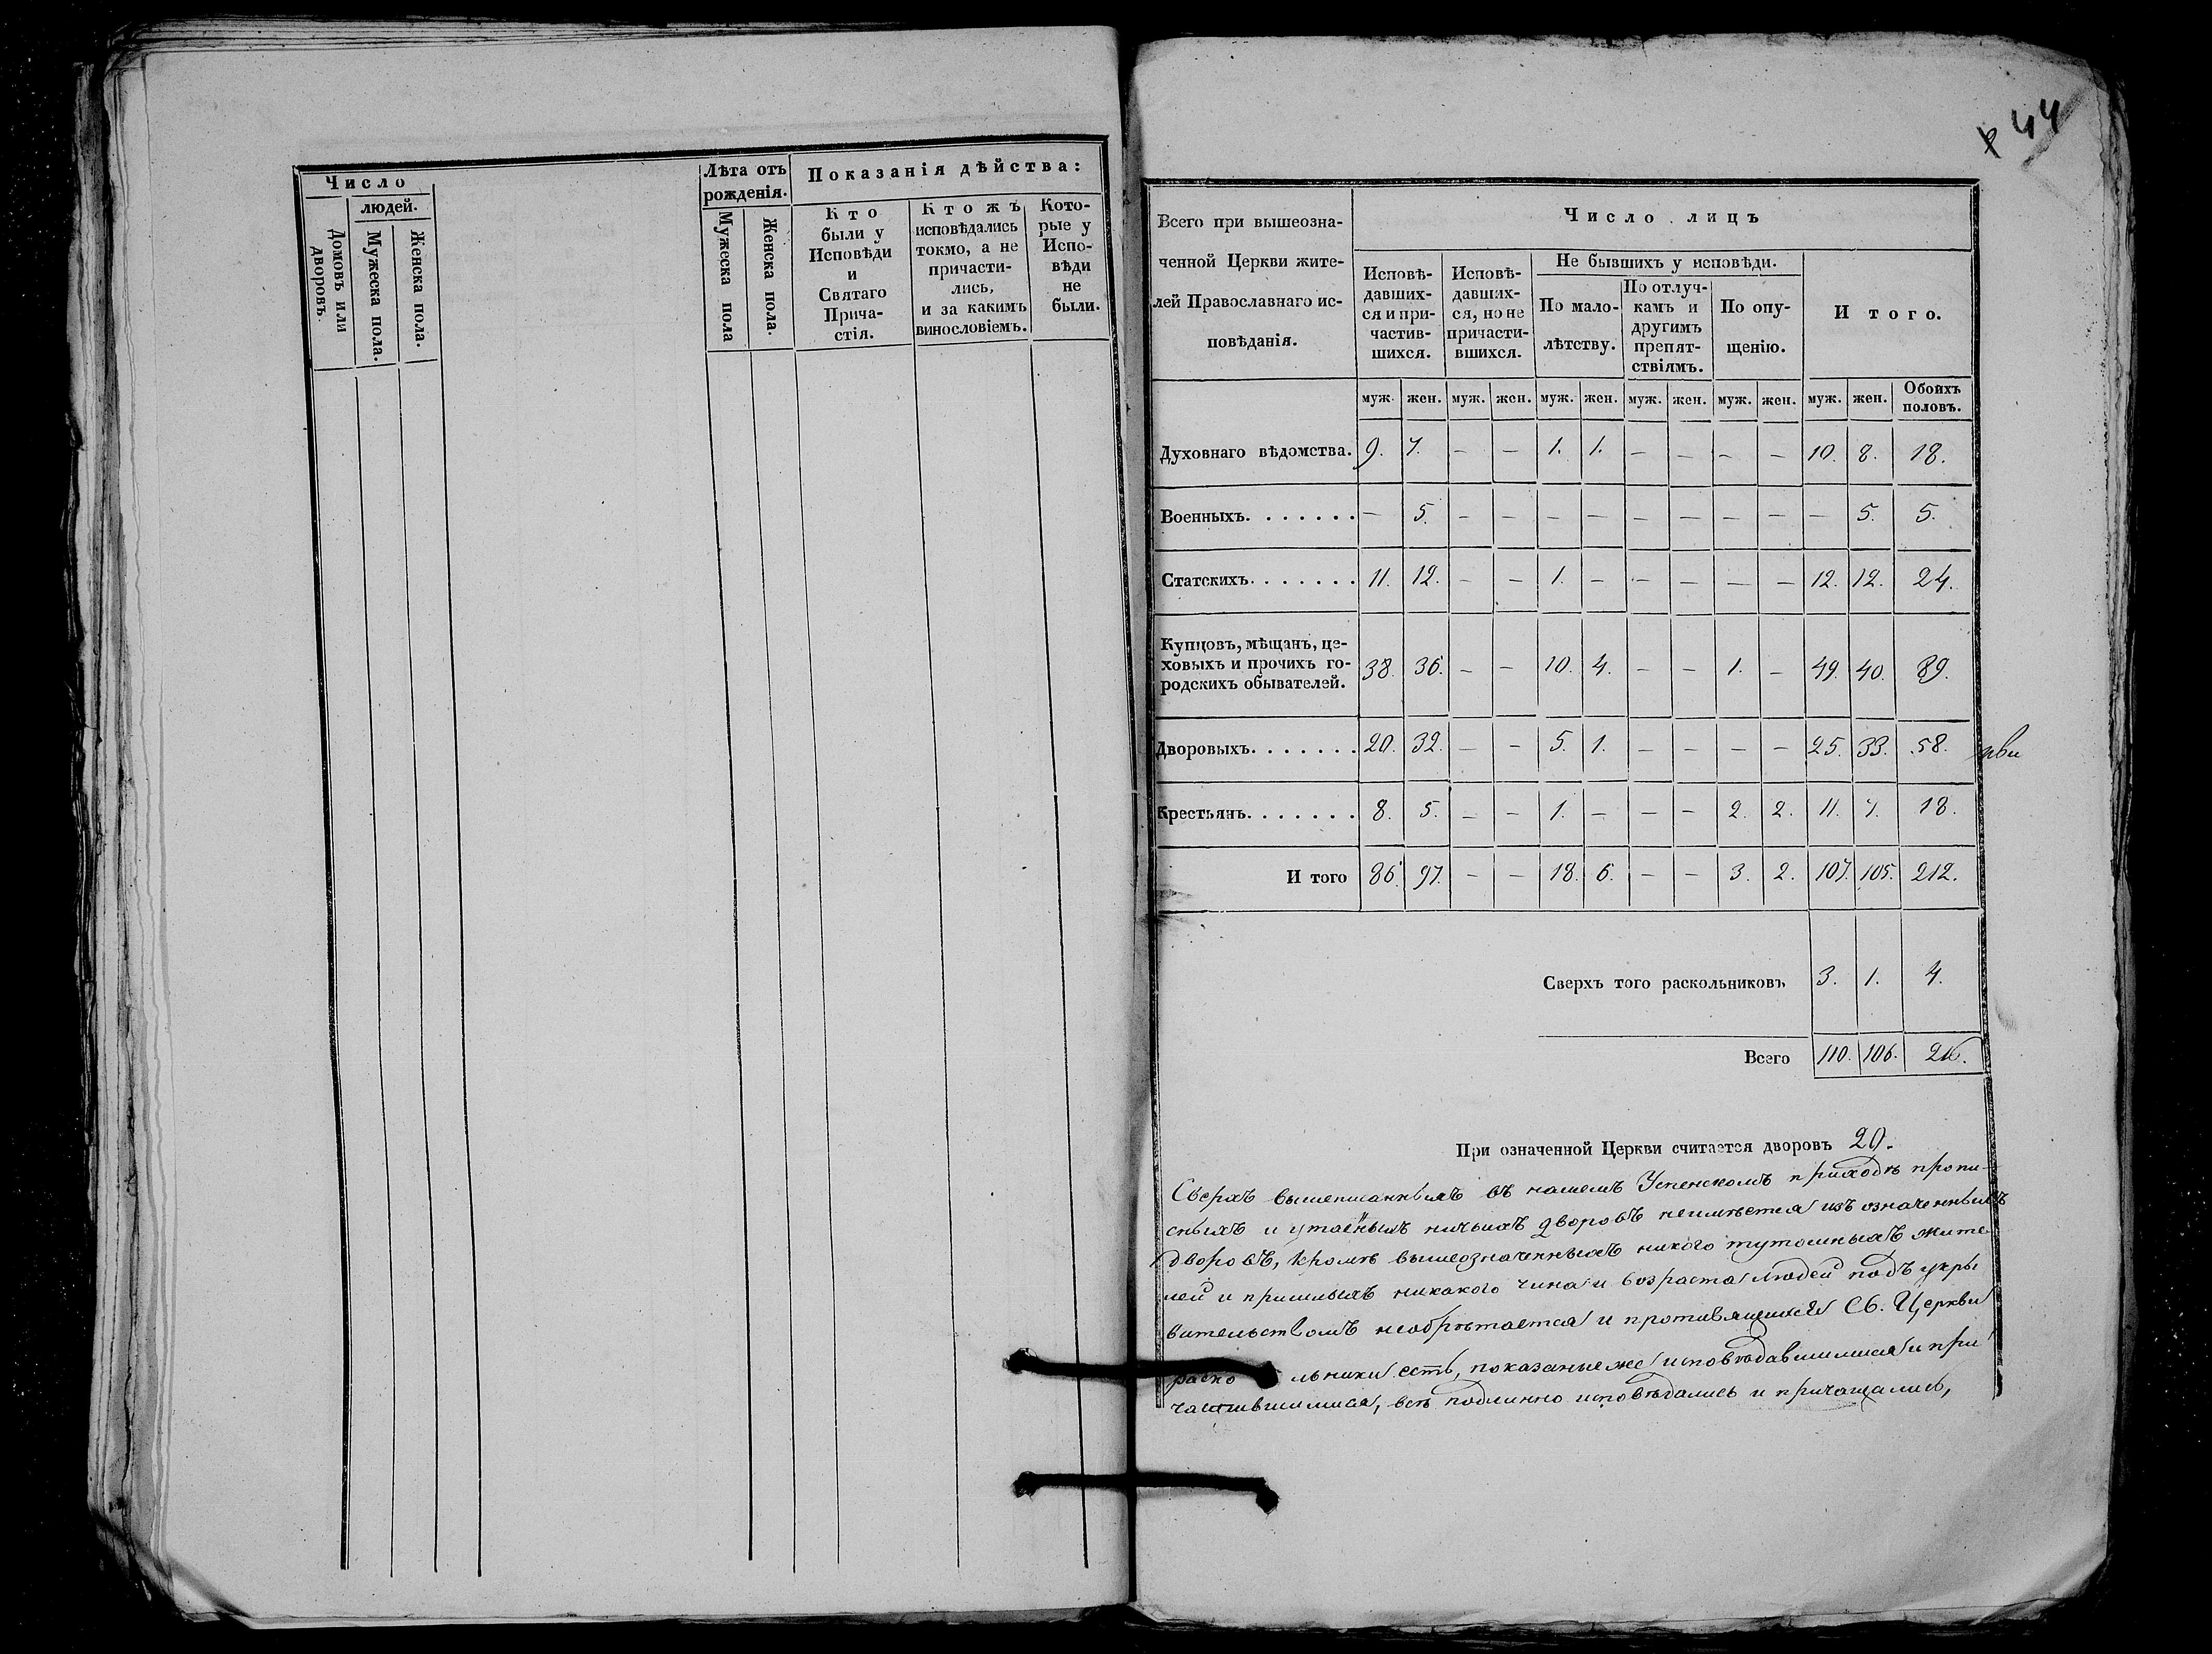 Число
людей.
Домовъ или дворовъ.
Мужеска пола.
Женска пола.
Лѣта отъ
рожденія.
Мужеска пола
Женска пола.
Показанія дѣйства:
Кто
были у
Исповѣди
и
Святаго
Прича-
стія.
Кто жъ
исповѣдались
токмо, а не
причасти-
лись,
и за какимъ
винословіемъ.
Кото-
рые у
Испо-
вѣди
не
были.
44
Всего при вышеозна-
ченной Церкви жите-
лей Православнаго ис-
повѣданія.
Число лицъ
Исповѣ-
давших-
ся и при-
частив-
шихся.
Исповѣ-
давших-
ся, но не
причасти-
вшихся.
Не бывшихъ у исповѣди.
По мало-
лѣтству.
По отлуч-
камъ и
другимъ
препят-
ствіямъ.
По опу-
щенію.
И того.
муж. жен. муж. жен. муж. жен. муж. жен. муж. жен. муж. жен. Обоихъ половъ.
Духовнаго вѣдомства. 9. 7. – – 1. 1. – – – – 10. 8. 18.
Военныхъ. . . . . . . – 5. – – – – – – – – – 5. 5.
Статскихъ. . . . . . . 11. 12. – – 1. – – – – – 12. 12. 24.
Купцовъ, мѣщанъ, це-
ховыхъ и прочихъ го-
родскихъ обывателей. 38. 36. – – 10. 4. – – 1. – 49. 40. 89.
Дворовыхъ. . . . . . . 20. 32. – – 5. 1. – – – – 25. 33. 58.
Крестьянъ. . . . . . . 8. 5. – – 1. – – – 2. 2. 11. 7. 18.
И того 86. 97. – – 18. 6. – – 3. 2. 107. 105. 212.
Сверхъ того раскольниковъ 3. 1. 4.
Всего 110. 106. 216.
При означенной Церкви считается дворовъ 20.
Сверхъ вышеписанныхъ въ нашемъ Успенскомъ приходѣ пропи-
сныхъ и утаенныхъ ничьихъ дворовъ неимѣется изъ означенныхъ
дворовъ, кромѣ вышеозначенныхъ никого тутошныхъ жите
лей и пришлыхъ никакого чина и возраста людей подъ укры
вательствомъ необрѣтается и противящихся Св. Церкви
раско льники есть, показаные же исповѣдавшимися и при
частившимися, всѣ подлинно исповѣдались и причащались,